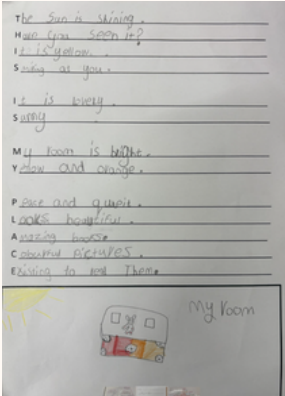 The Sun is shining.
Have you seen it?
It is yellow.
S as you.
It is very
Sunny
My room is bright.
Yellow and orange.
Peace and
Looks beautiful.
Amazing books.
Colourful pictures.
to read Them.
My room